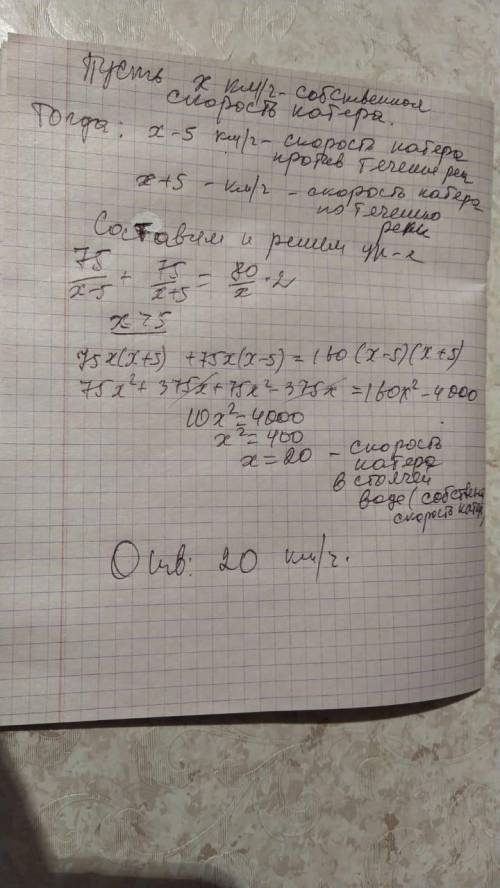 Пусть x км/ч - собственная
скорость катера.
Тогда: x-5 км/ч - скорость катера
против течения реки
x+5 - км/ч - скорость катера
по течению
реки
Составим и решим ур-е
75/(x-5) + 75/(x+5) = 80/x · 2
x>5
75x(x+5) +75x(x-5)=160(x-5)(x+5)
75x²+375x+75x²-375x=160x²-4000
10x²=4000
x²=400
x=20 - скорость
катера
в стоячей
воде (собствен
скорость катер
Отв: 20 км/ч.